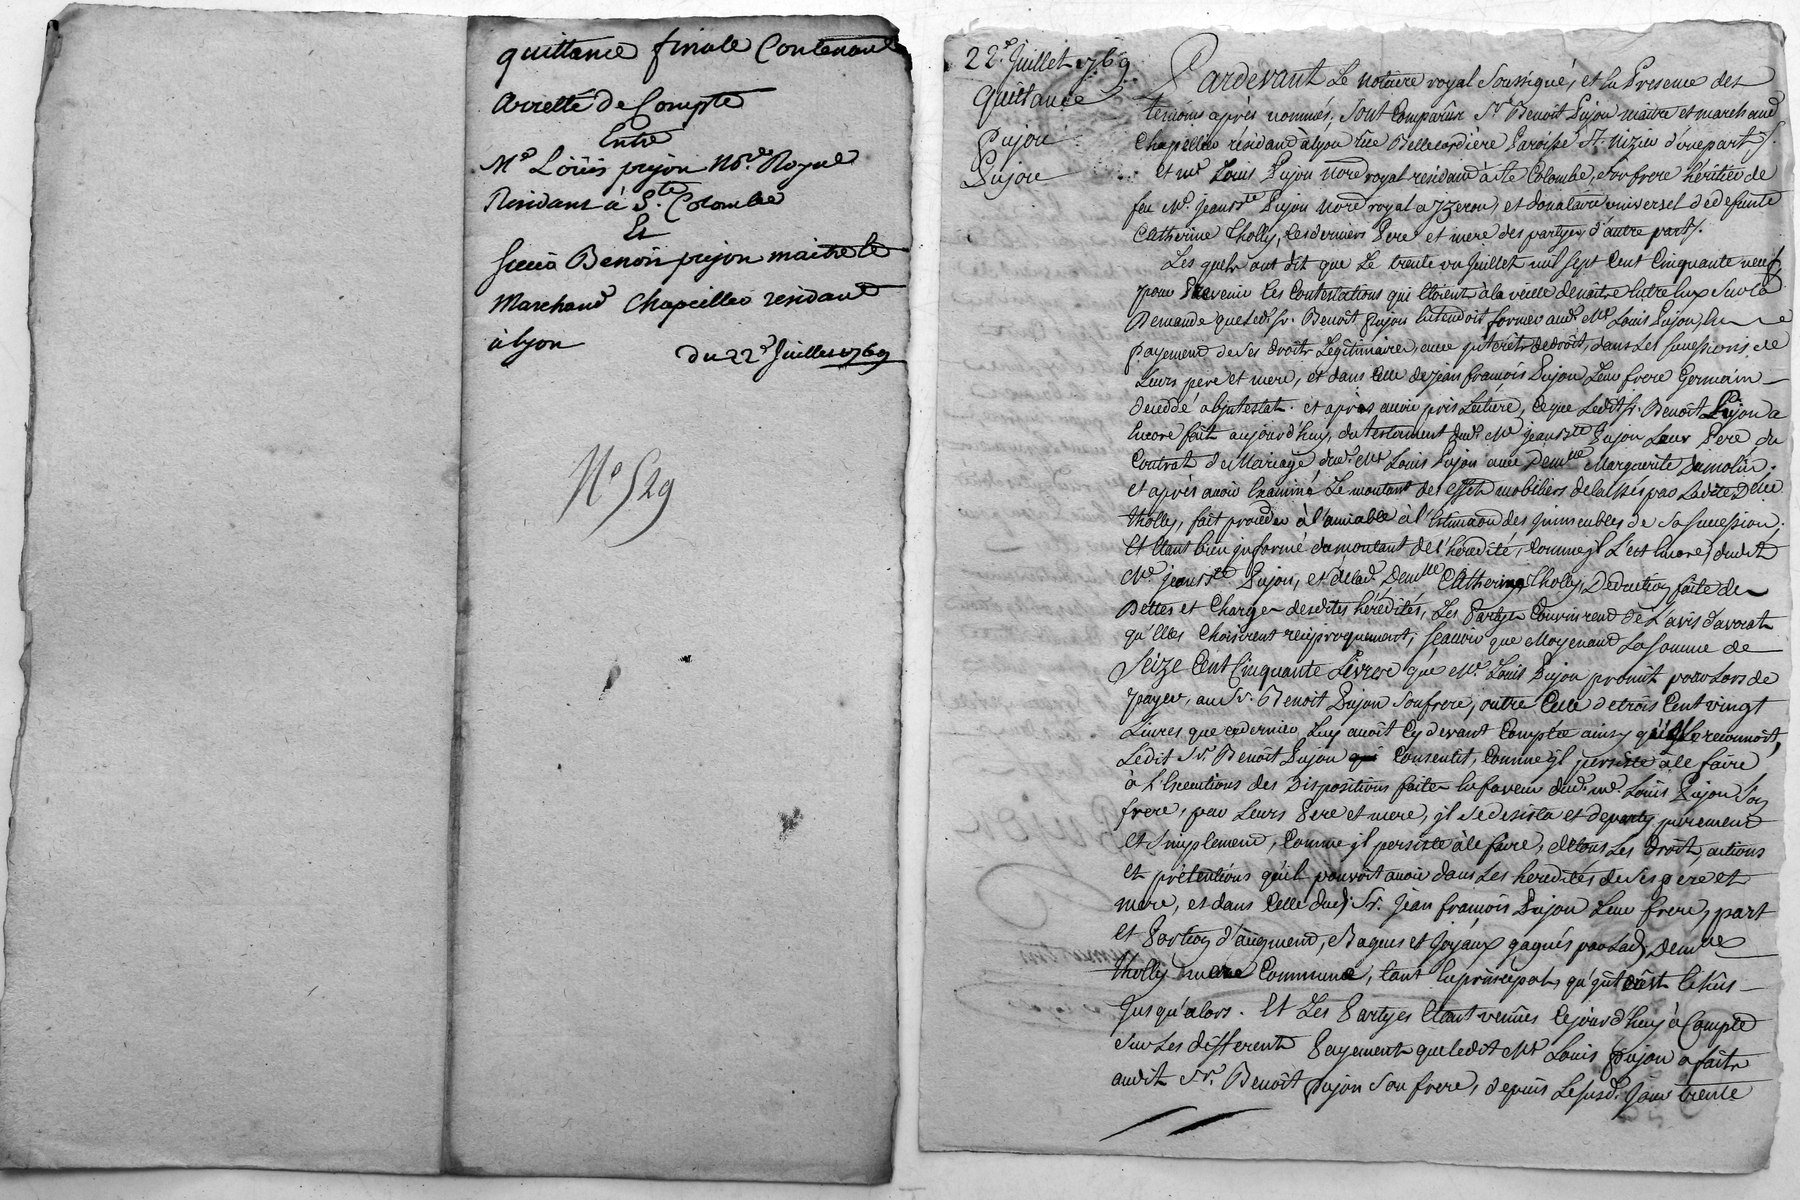 quittance finale Contenant
Arretté de Compte
Entre
Me Loüis pujon No.re Royal
Residant à Ste Colombe
Et
Sieur Benoit pujon maitre et
Marchand Chapellier residant
à lyon
du 22e Juillet 1769
No 529
22e. Juillet 1769
Quittance
Pujon
Pujon
Pardevant Le Notaire royal Soussigné, et En Presence des
temoins après nommés, Sont Comparûs Sr. Benoit Pujon maitre et marchand
Chapellier résidant à lyon rüe Bellecordière Paroisse St. Nizier d'une part /.
et me. Louis Pujon Nore royal résidant à Ste Colombe, son frere héritier de
feu Me. Jean Bte Pujon Nore royal a yzeron, et donataire universel de defunte
Catherine Tholly, Ces derniers Pere et mere des partyes, d'autre part /.
Les quels ont dit que Le trente un Juillet mil Sept Cent Cinquante neuf,
pour Prevenir Les Contestations qui Etoient à la veille de naitre Entre Eux Sur la
Demande que led. Sr. Benoît Pujon Entendoit former aud. Me Louis Pujon, En
payement de Ses droits Légitimaires, avec interêts de droit, dans Les Successions de
Leurs pere et mere, et dans Celle de Jean françois Pujon Leur frere Germain
decedé abjntestat. et après avoir pris Lecture, Ce que Ledit Sr. Benoît Pujon a
Encore fait aujourd'huy, du testament dud. Me Jean Bte Pujon Leur Pere, du
Contrat de Mariage dud. Me Louis Pujon avec Demlle Marguerite Dumolin.
et après avoir Examiné Le montant des effets mobiliers delaissés par Ladite Delle
Tholly, fait proceder à l'amiable à l'Estimaon des jmmeubles de Sa Succession.
Et Etant bien jnformé du montant de l'heredité, Comme jl L'est Encore, dudit
Me. Jean Bte Pujon, et de lad. Demlle Catherine Tholly, Deduction faite des
Dettes et Charges desdites hérédités, Les Partyes Convinrent de L'avis d'avocats
qu'Elles Choisirent reciproquement, Sçavoir que Moyenant La Somme de
Seize Cent Cinquante Livres que Me. Louis Pujon promit pour Lors de
payer, au Sr. Benoit Pujon Son frere, outre Celle de trois Cent vingt
Livres que ce dernier Luy avoit Cy devant Comptée ainsy qu'il Le reconnoît,
Ledit Sr. Benoît Pujon Consentit, Comme jl persiste à le faire
à l'Execution des Dispositions faites En faveur dud. me. Louis Pujon Son
frere, par Leurs Pere et mere, jl Se desista et departy purement
et Simplement, Comme jl persiste à le faire, de tous Les droits, actions
et prétentions qu'il pouvoit avoir dans Les heredités de Ses pere et
mere, et dans Celle dud. Sr. Jean françois Pujon Leur frere, part
et Portion d'augment, Bagues et Joyaux gagnés par Lad. Demlle
Tholly mere Commune, tant En principal, qu'jnterêts Echûs
Jusqu'alors. Et Les Partyes Etant venües Cejourd'huy à Compte
Sur Les differents Payements que ledit Me Louis Pujon a faits
audit Sr. Benoît Pujon Son frere, depuis Le Susd. Jour trente